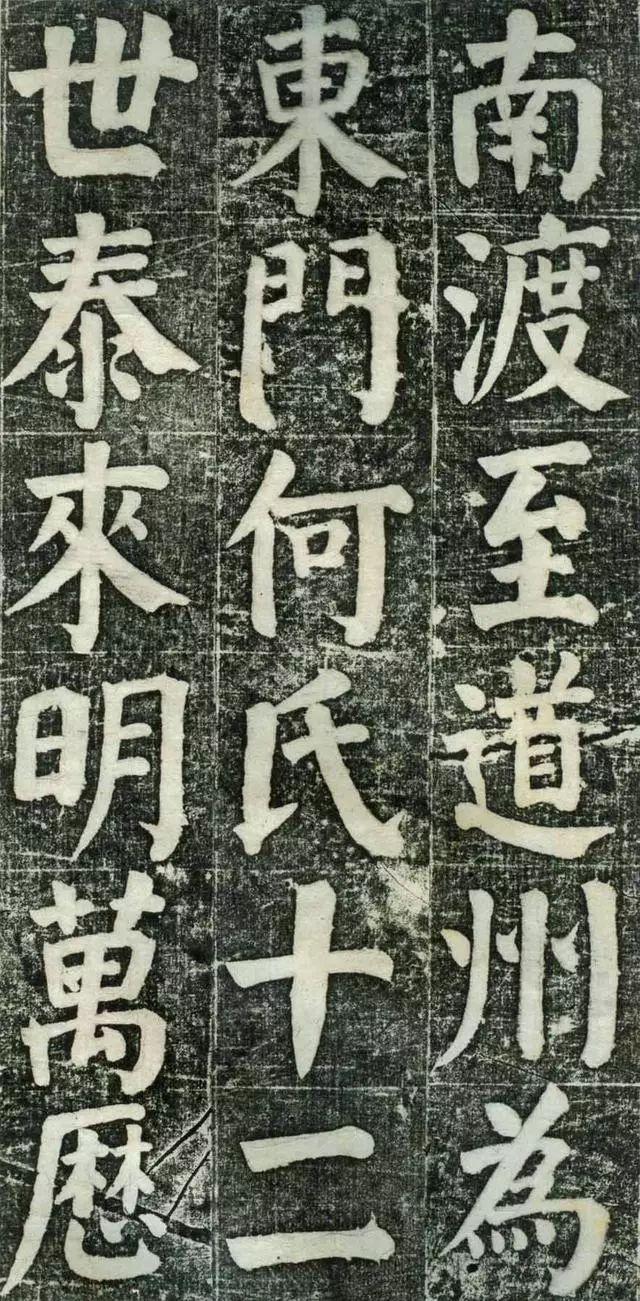 南渡至道州為
東門何氏十二
世泰來明萬厯